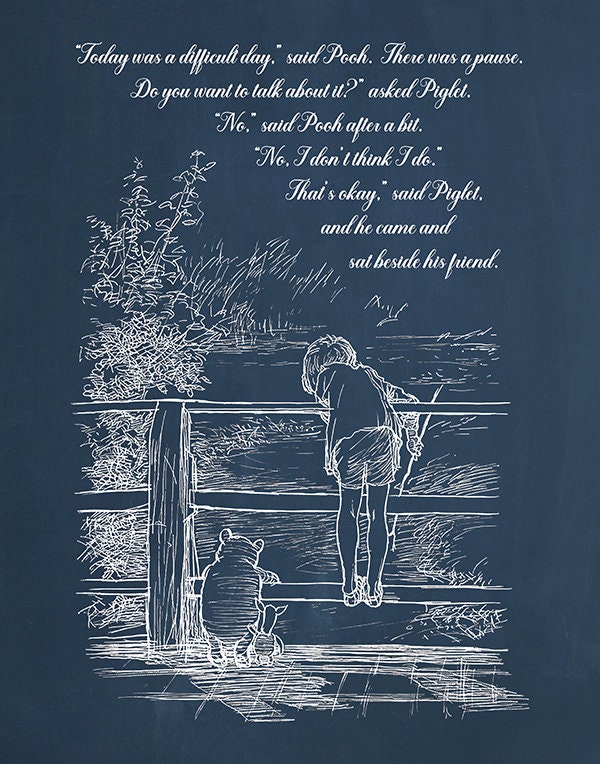 "Today was a difficult day," said Pooh. There was a pause.
Do you want to talk about it?" asked Piglet.
"No," said Pooh after a bit.
"No, I don't think I do."
That's okay," said Piglet,
and he came and
sat beside his friend.